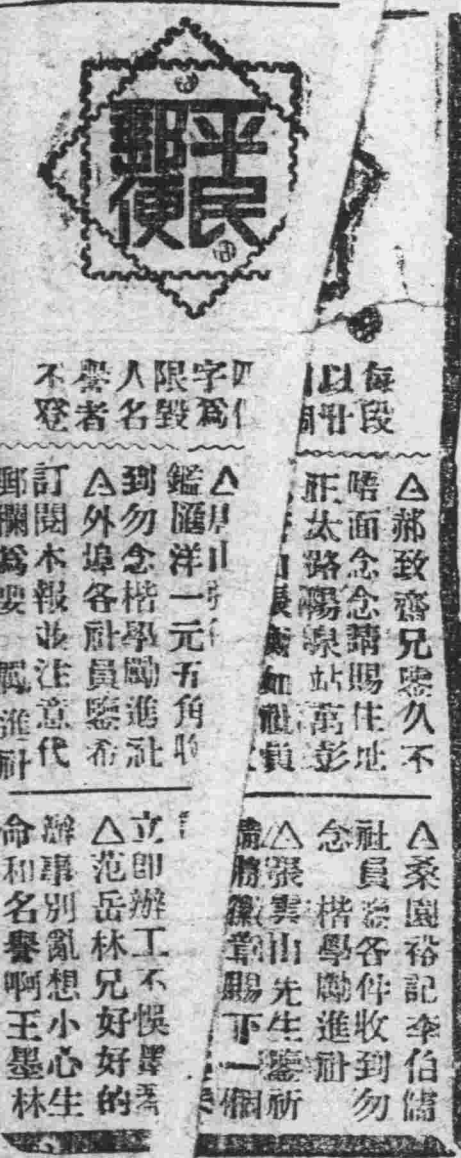 平民
郵便
每段
以廿
四個
字爲
限毀
人名
譽者
不登
△郝致齋兄鑒久不
晤面念念請賜住址
正太路陽泉站萬彭
張衡如社員
△唐山
鑑匯洋一元五角收
到勿念楷學勵進社
△外埠各社員鑒希
訂閱本報並注意代
郵欄爲要 勵進社
△桑園裕記李伯儒
社員鑒各件收到勿
念 楷學勵進社
△張雲山先生鑒祈
將徽章賜下一個
立即辦工不悞
△范岳林兄好好的
辦事別亂想小心生
命和名譽啊王墨林